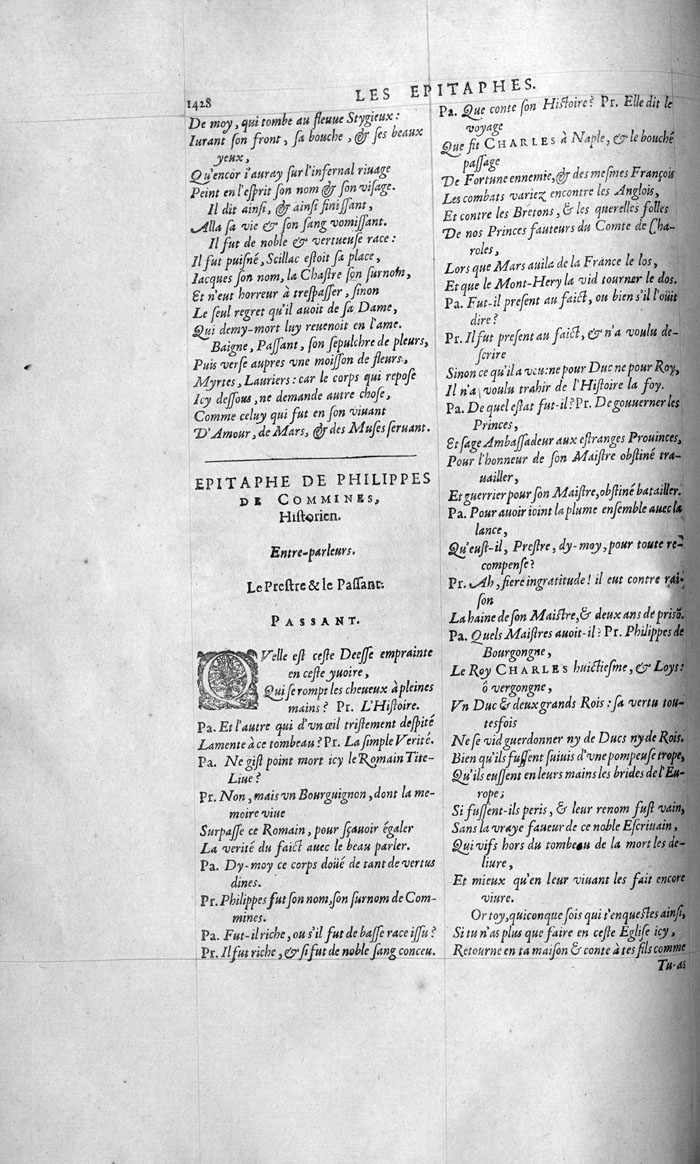 1428
LES EPITAPHES.
De moy, qui tombe au fleuue Stygieux:
Iurant son front, sa bouche, & ses beaux
yeux,
Qu'encor i'auray sur l'infernal riuage
Peint en l'esprit son nom & son visage.
Il dit ainsi, & ainsi finissant,
Alla sa vie & son sang vomissant.
Il fut de noble & vertueuse race:
Il fut puisné, Scillac estoit sa place,
Iacques son nom, la Chastre son surnom,
Et n'eut horreur à trespasser, sinon
Le seul regret qu'il auoit de sa Dame,
Qui demy-mort luy reuenoit en l'ame.
Baigne, Passant, son sepulchre de pleurs,
Puis verse aupres vne moisson de fleurs,
Myrtes, Lauriers: car le corps qui repose
Icy dessous, ne demande autre chose,
Comme celuy qui fut en son viuant
D'Amour, de Mars, & des Muses seruant.
EPITAPHE DE PHILIPPES
DE COMMINES,
Historien.
Entre-parleurs.
Le Prestre & le Passant.
PASSANT.
QVelle est ceste Deesse emprainte
en ceste yuoire,
Qui se rompt les cheueux à pleines
mains? Pr. L'Histoire.
Pa. Et l'autre qui d'vn œil tristement despité
Lamente à ce tombeau? Pr. La simple Verité.
Pa. Ne gist point mort icy le Romain Tite-
Liue?
Pr. Non, mais vn Bourguignon, dont la me-
moire viue
Surpasse ce Romain, pour sçauoir égaler
La verité du faict auec le beau parler.
Pa. Dy-moy ce corps doüé de tant de vertus
dines.
Pr. Philippes fut son nom, son surnom de Com-
mines.
Pa. Fut-il riche, ou s'il fut de basse race issu?
Pr. Il fut riche, & si fut de noble sang conceu.
Pa. Que conte son Histoire? Pr. Elle dit le
voyage
Que fit CHARLES à Naple, & le bouché
passage
De Fortune ennemie, & des mesmes François
Les combats variez encontre les Anglois,
Et contre les Bretons, & les querelles folles
De nos Princes fauteurs du Comte de Cha-
roles,
Lors que Mars auila de la France le los,
Et que le Mont-Hery la vid tourner le dos.
Pa. Fut-il present au faict, ou bien s'il l'oüit
dire?
Pr. Il fut present au faict, & n'a voulu de-
scrire
Sinon ce qu'il a veu: ne pour Duc ne pour Roy,
Il n'a voulu trahir de l'Histoire la foy.
Pa. De quel estat fut-il? Pr. De gouuerner les
Princes,
Et sage Ambassadeur aux estranges Prouinces,
Pour l'honneur de son Maistre obstiné tra-
uailler,
Et guerrier pour son Maistre, obstiné batailler.
Pa. Pour auoir ioint la plume ensemble auec la
lance,
Qu'eust-il, Prestre, dy-moy, pour toute re-
compense?
Pr. Ah, fiere ingratitude! il eut contre rai-
son
La haine de son Maistre, & deux ans de prisõ.
Pa. Quels Maistres auoit-il? Pr. Philippes de
Bourgongne,
Le Roy CHARLES huictiesme, & Loys:
ô vergongne,
Vn Duc & deux grands Rois: sa vertu tou-
tesfois
Ne se vid guerdonner ny de Ducs ny de Rois.
Bien qu'ils fussent suiuis d'vne pompeuse trope,
Qu'ils eussent en leurs mains les brides de l'Eu-
rope;
Si fussent-ils peris, & leur renom fust vain,
Sans la vraye faueur de ce noble Escriuain,
Qui vifs hors du tombeau de la mort les de-
liure,
Et mieux qu'en leur viuant les fait encore
viure.
Or toy, quiconque sois qui t'enquestes ainsi,
Si tu n'as plus que faire en ceste Eglise icy,
Retourne en ta maison & conte à tes fils comme
Tu-as